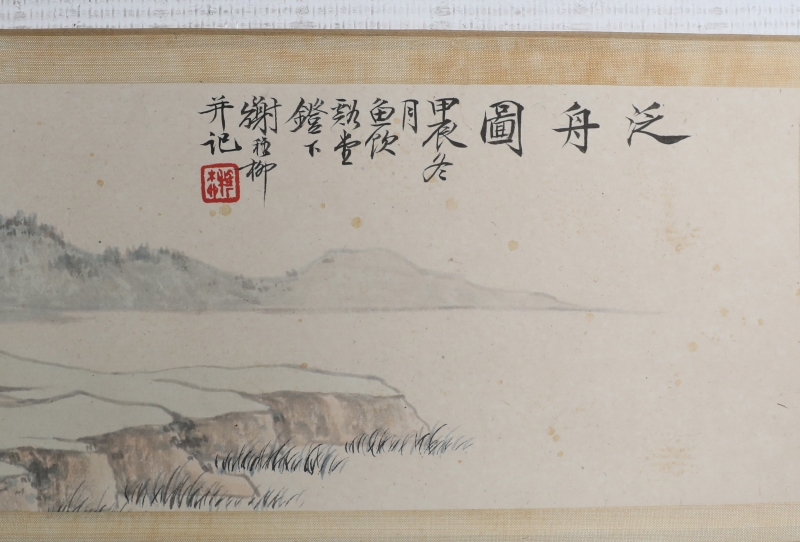 泛舟圖
甲辰冬
月
魚飲
谿堂
鐙下
謝稚柳
并記
稚柳